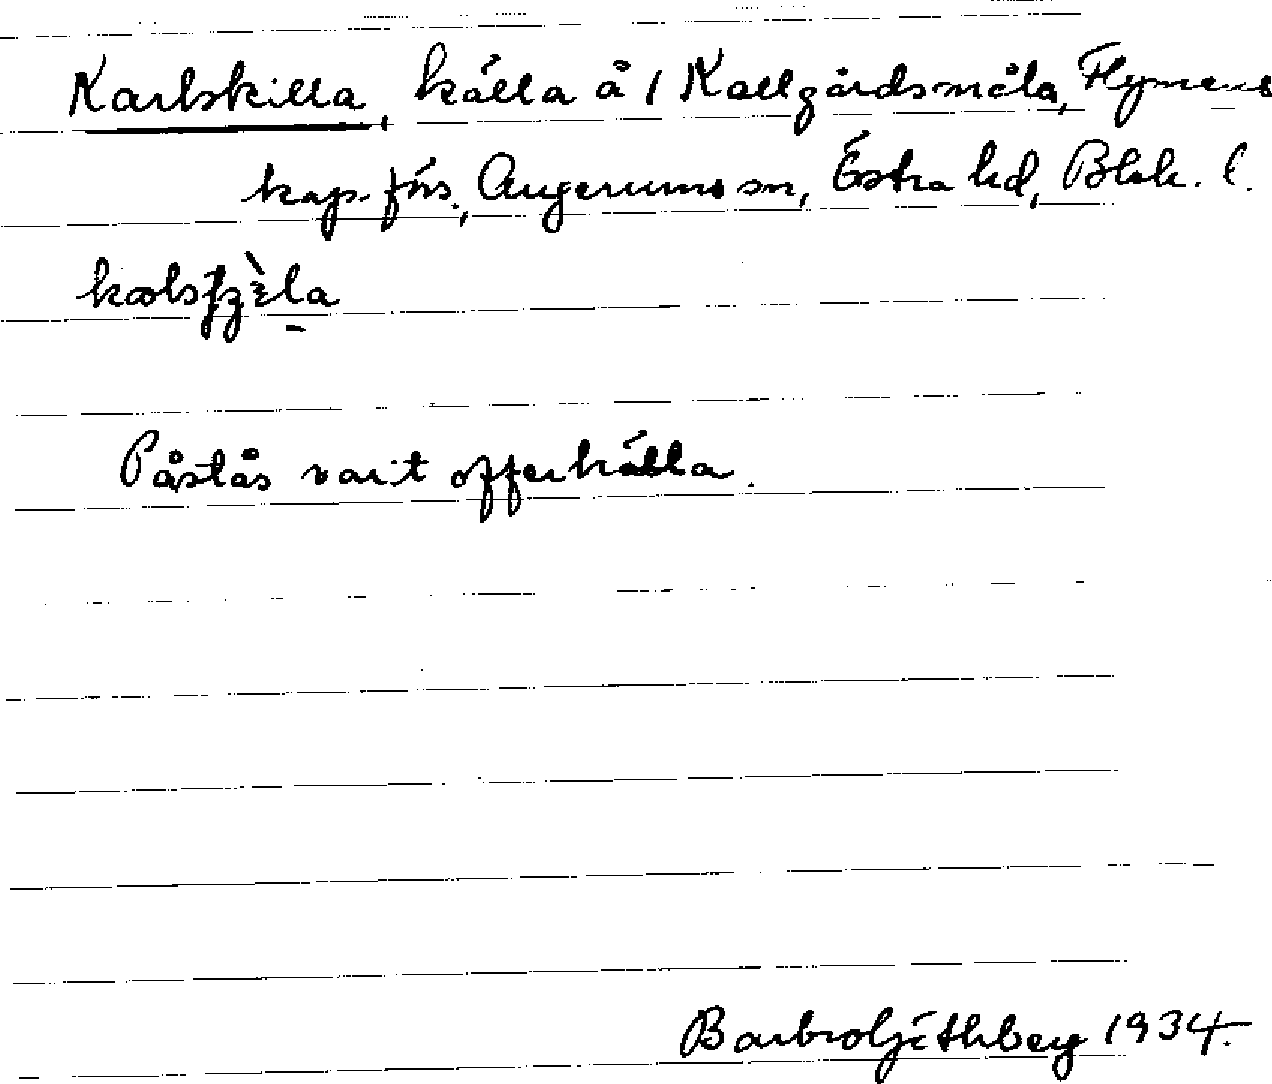 Karlskilla, källa å 1 Kallgårdsmåla, Flymens
kap. förs., Augerums sn, Östra hd, Blek. l.
Påstås varit offerkälla.
Barbro Ljéthberg 1934.